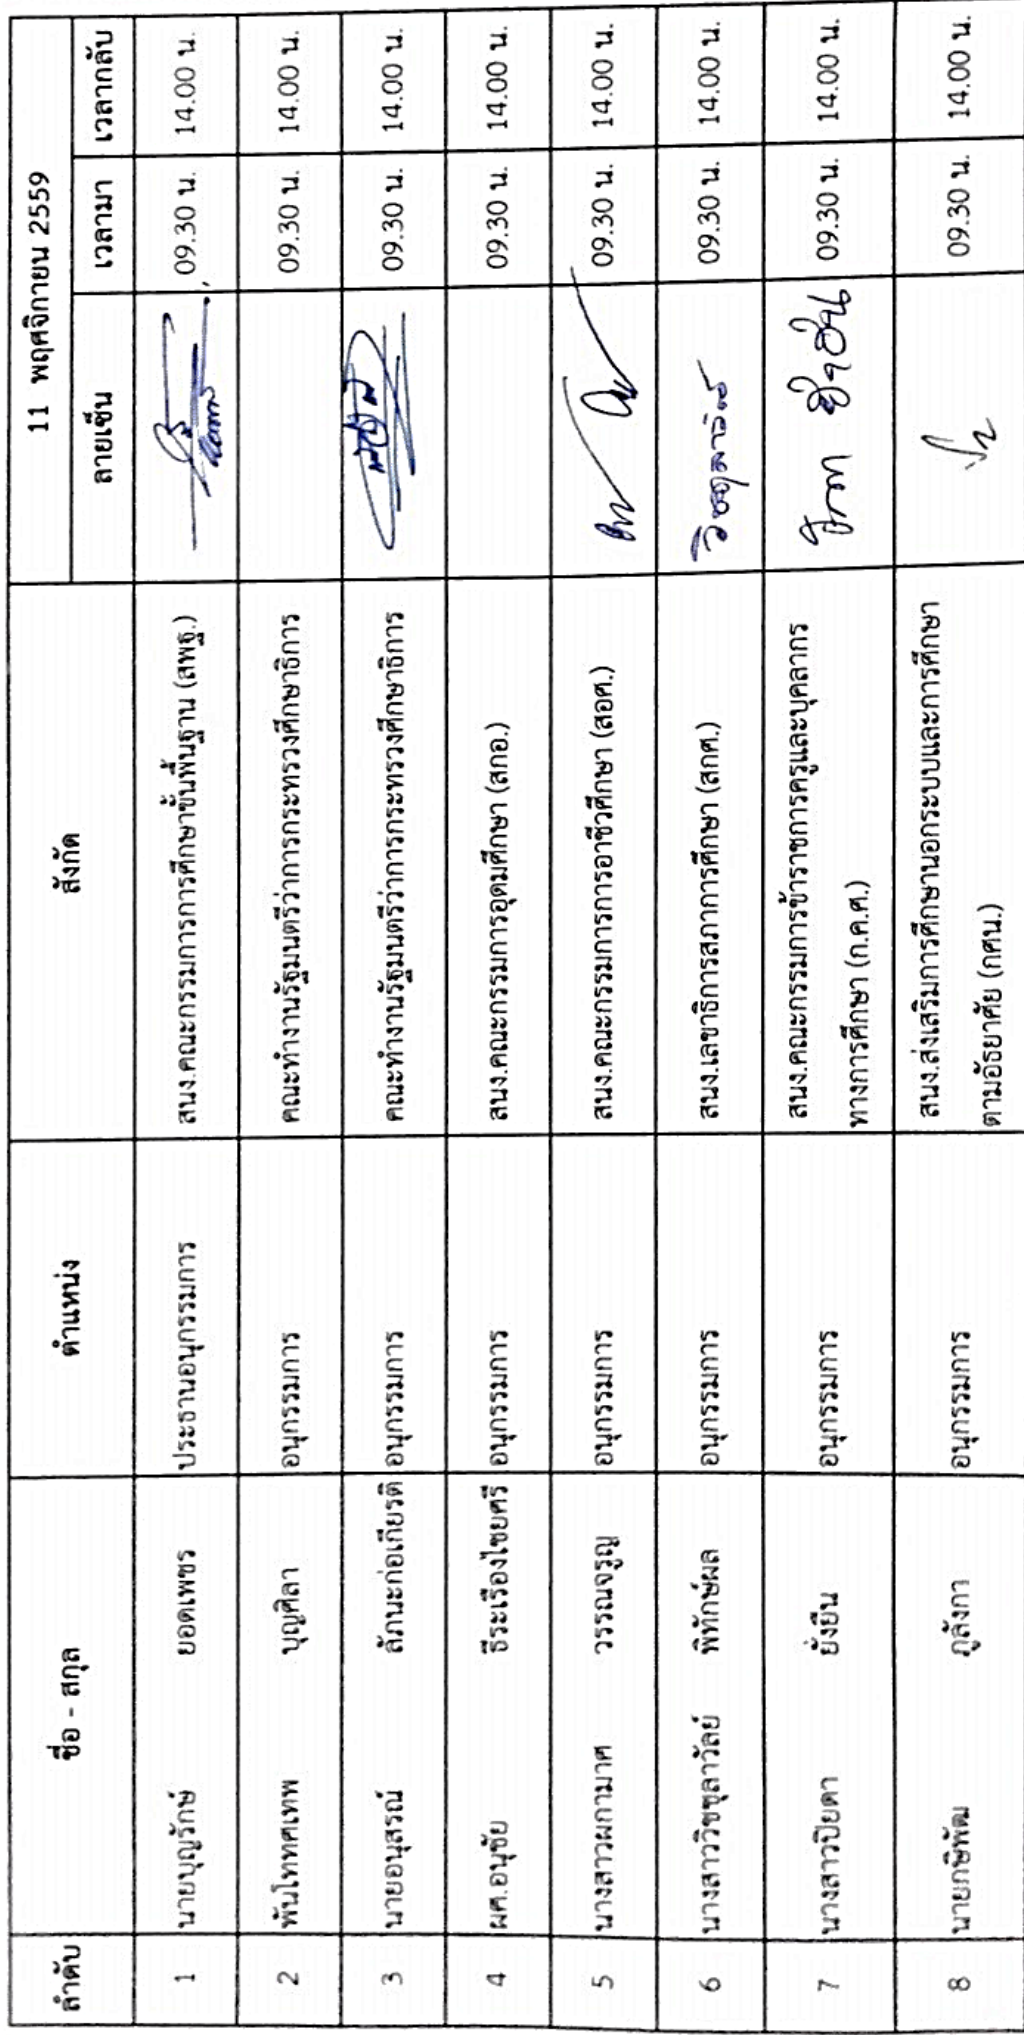 11 พฤศจิกายน 2559
ลำดับ ชื่อ - สกุล ตำแหน่ง สังกัด ลายเซ็น เวลามา เวลากลับ
1 นายบุญรักษ์ ยอดเพชร ประธานอนุกรรมการ สนง.คณะกรรมการการศึกษาขั้นพื้นฐาน (สพฐ.) 09.30 น. 14.00 น.
2 พันโททศเทพ บุญศิลา อนุกรรมการ คณะทำงานรัฐมนตรีว่าการกระทรวงศึกษาธิการ 09.30 น. 14.00 น.
3 นายอนุสรณ์ ลัภนะก่อเกียรติ อนุกรรมการ คณะทำงานรัฐมนตรีว่าการกระทรวงศึกษาธิการ 09.30 น. 14.00 น.
4 ผศ.อนุชัย ธีระเรืองไชยศรี อนุกรรมการ สนง.คณะกรรมการอุดมศึกษา (สกอ.) 09.30 น. 14.00 น.
5 นางสาวผกามาศ วรรณจรูญ อนุกรรมการ สนง.คณะกรรมการการอาชีวศึกษา (สอศ.) 09.30 น. 14.00 น.
6 นางสาววิชชุลาวัลย์ พิทักษ์ผล อนุกรรมการ สนง.เลขาธิการสภาการศึกษา (สกศ.) วิชชุลาวัลย์ 09.30 น. 14.00 น.
7 นางสาวปิยดา ยั่งยืน อนุกรรมการ สนง.คณะกรรมการข้าราชการครูและบุคลากร 09.30 น. 14.00 น.
ทางการศึกษา (ก.ค.ศ.)
8 นายกษิพัฒ ภูลังกา อนุกรรมการ สนง.ส่งเสริมการศึกษานอกระบบและการศึกษา 09.30 น. 14.00 น.
ตามอัธยาศัย (กศน.)